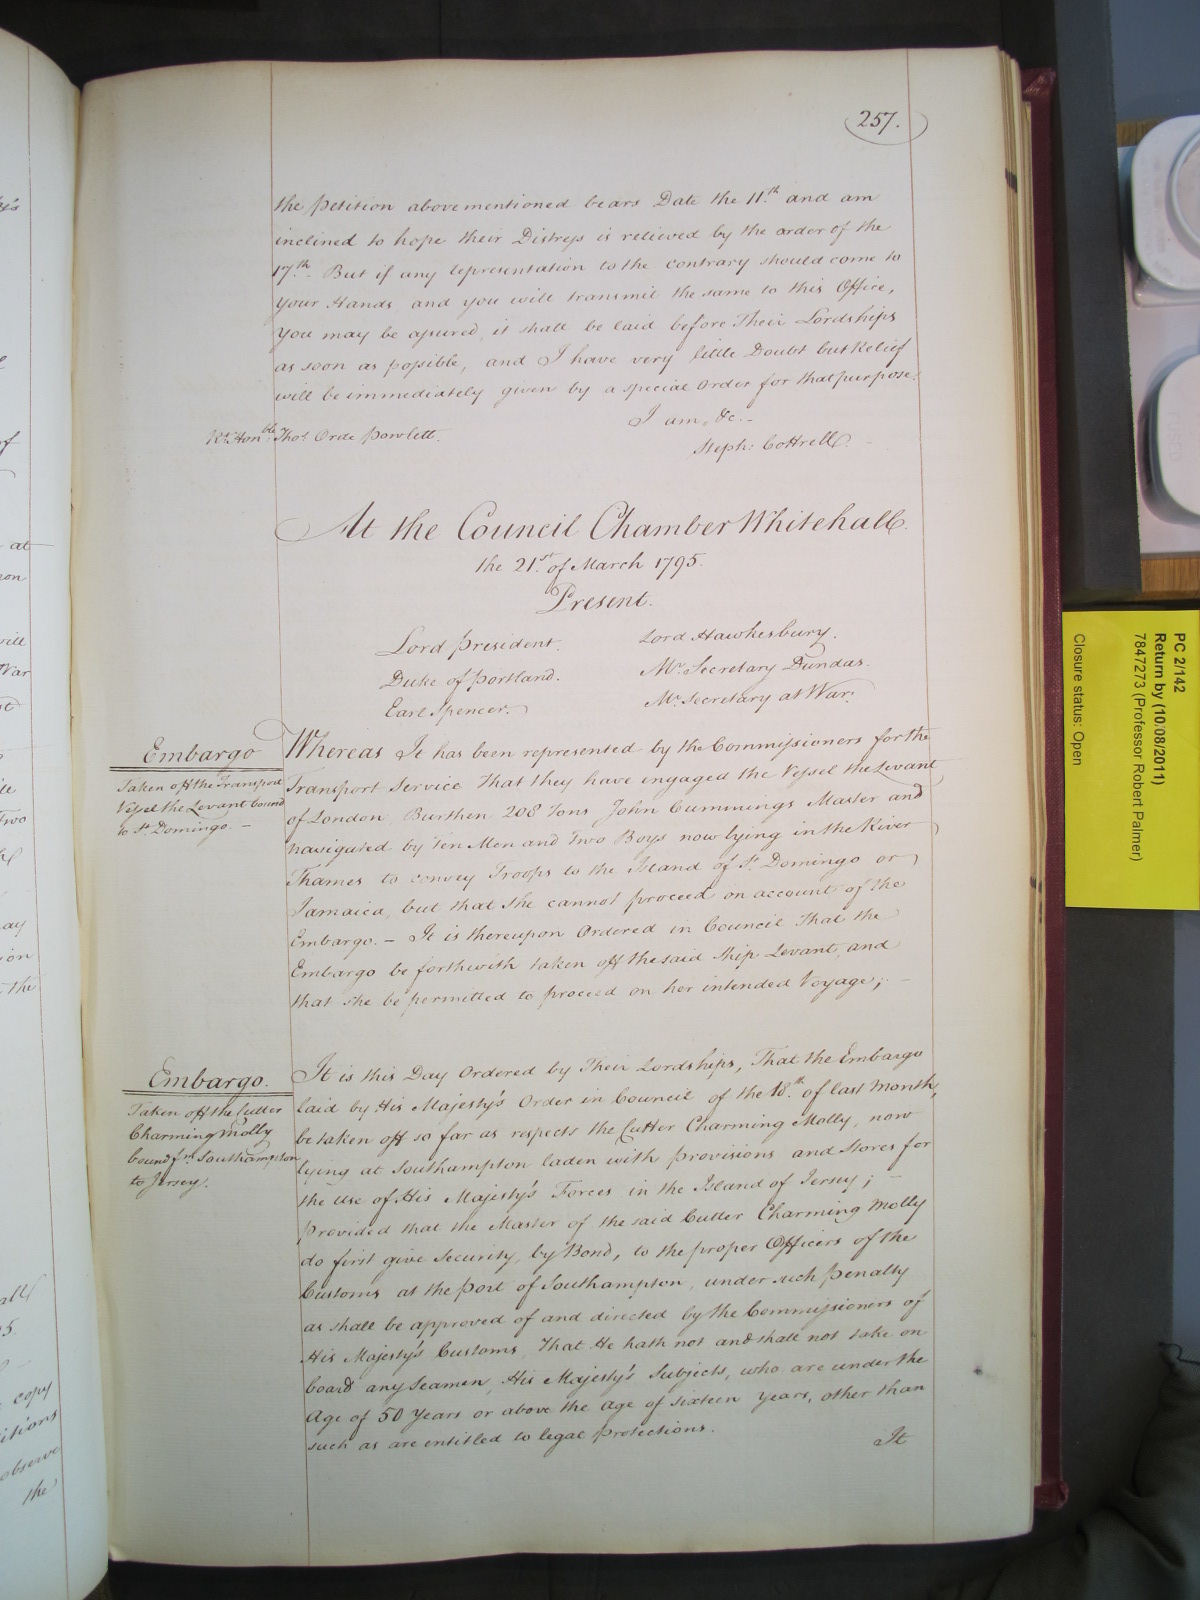 257.
the Petition abovementioned bears Date the 11.th and am
inclined to hope their Distress is relieved by the order of the
17.th But if any representation to the contrary should come to
your Hands, and you will transmit the same to this Office,
You may be assured, it shall be laid before Their Lordships
as soon as possible, and I have very little Doubt but Relief
will be immediately given by a special Order for that purpose.
I am, &c.
Rt. Honble. Thos. Orde Powlett.
Steph: Cottrell.
At the Council Chamber Whitehall.
the 21.st of March 1795.
Present.
Lord President. Lord Hawkesbury.
Duke of Portland. Mr. Secretary Dundas.
Earl Spencer. Mr. Secretary at War.
Embargo
Taken off the Transport
Vessel the Levant bound
to St. Domingo. –
Whereas It has been represented by the Commissioners for the
Transport Service That they have engaged the Vessel the Levant
of London, Burthen 208 Tons John Cummings Master and
navigated by Ten Men and Two Boys now lying in the River
Thames to convey Troops to the Island of St. Domingo or
Jamaica, but that She cannot proceed on account of the
Embargo. – It is thereupon Ordered in Council That the
Embargo be forthwith taken off the said Ship Levant, and
that she be permitted to proceed on her intended Voyage; –
Embargo.
Taken off the Cutter
Charming Molly
bound fm. Southampton
to Jersey.
It is this Day Ordered by Their Lordships, That the Embargo
laid by His Majesty's Order in Council of the 18.th of last Month,
be taken off so far as respects the Cutter Charming Molly, now
lying at Southampton laden with Provisions and Stores for
the Use of His Majesty's Forces in the Island of Jersey; –
Provided that the Master of the said Cutter Charming Molly
do first give Security, by Bond, to the proper Officers of the
Customs at the Port of Southampton, under such Penalty
as shall be approved of and directed by the Commissioners of
His Majesty's Customs, That He hath not and shall not take on
board any Seamen, His Majesty's Subjects, who are under the
Age of 50 Years or above the Age of sixteen Years, other than
such as are entitled to legal Protections.
It
PC 2/142
Return by (10/08/2011)
7847273 (Professor Robert Palmer)
Closure status: Open